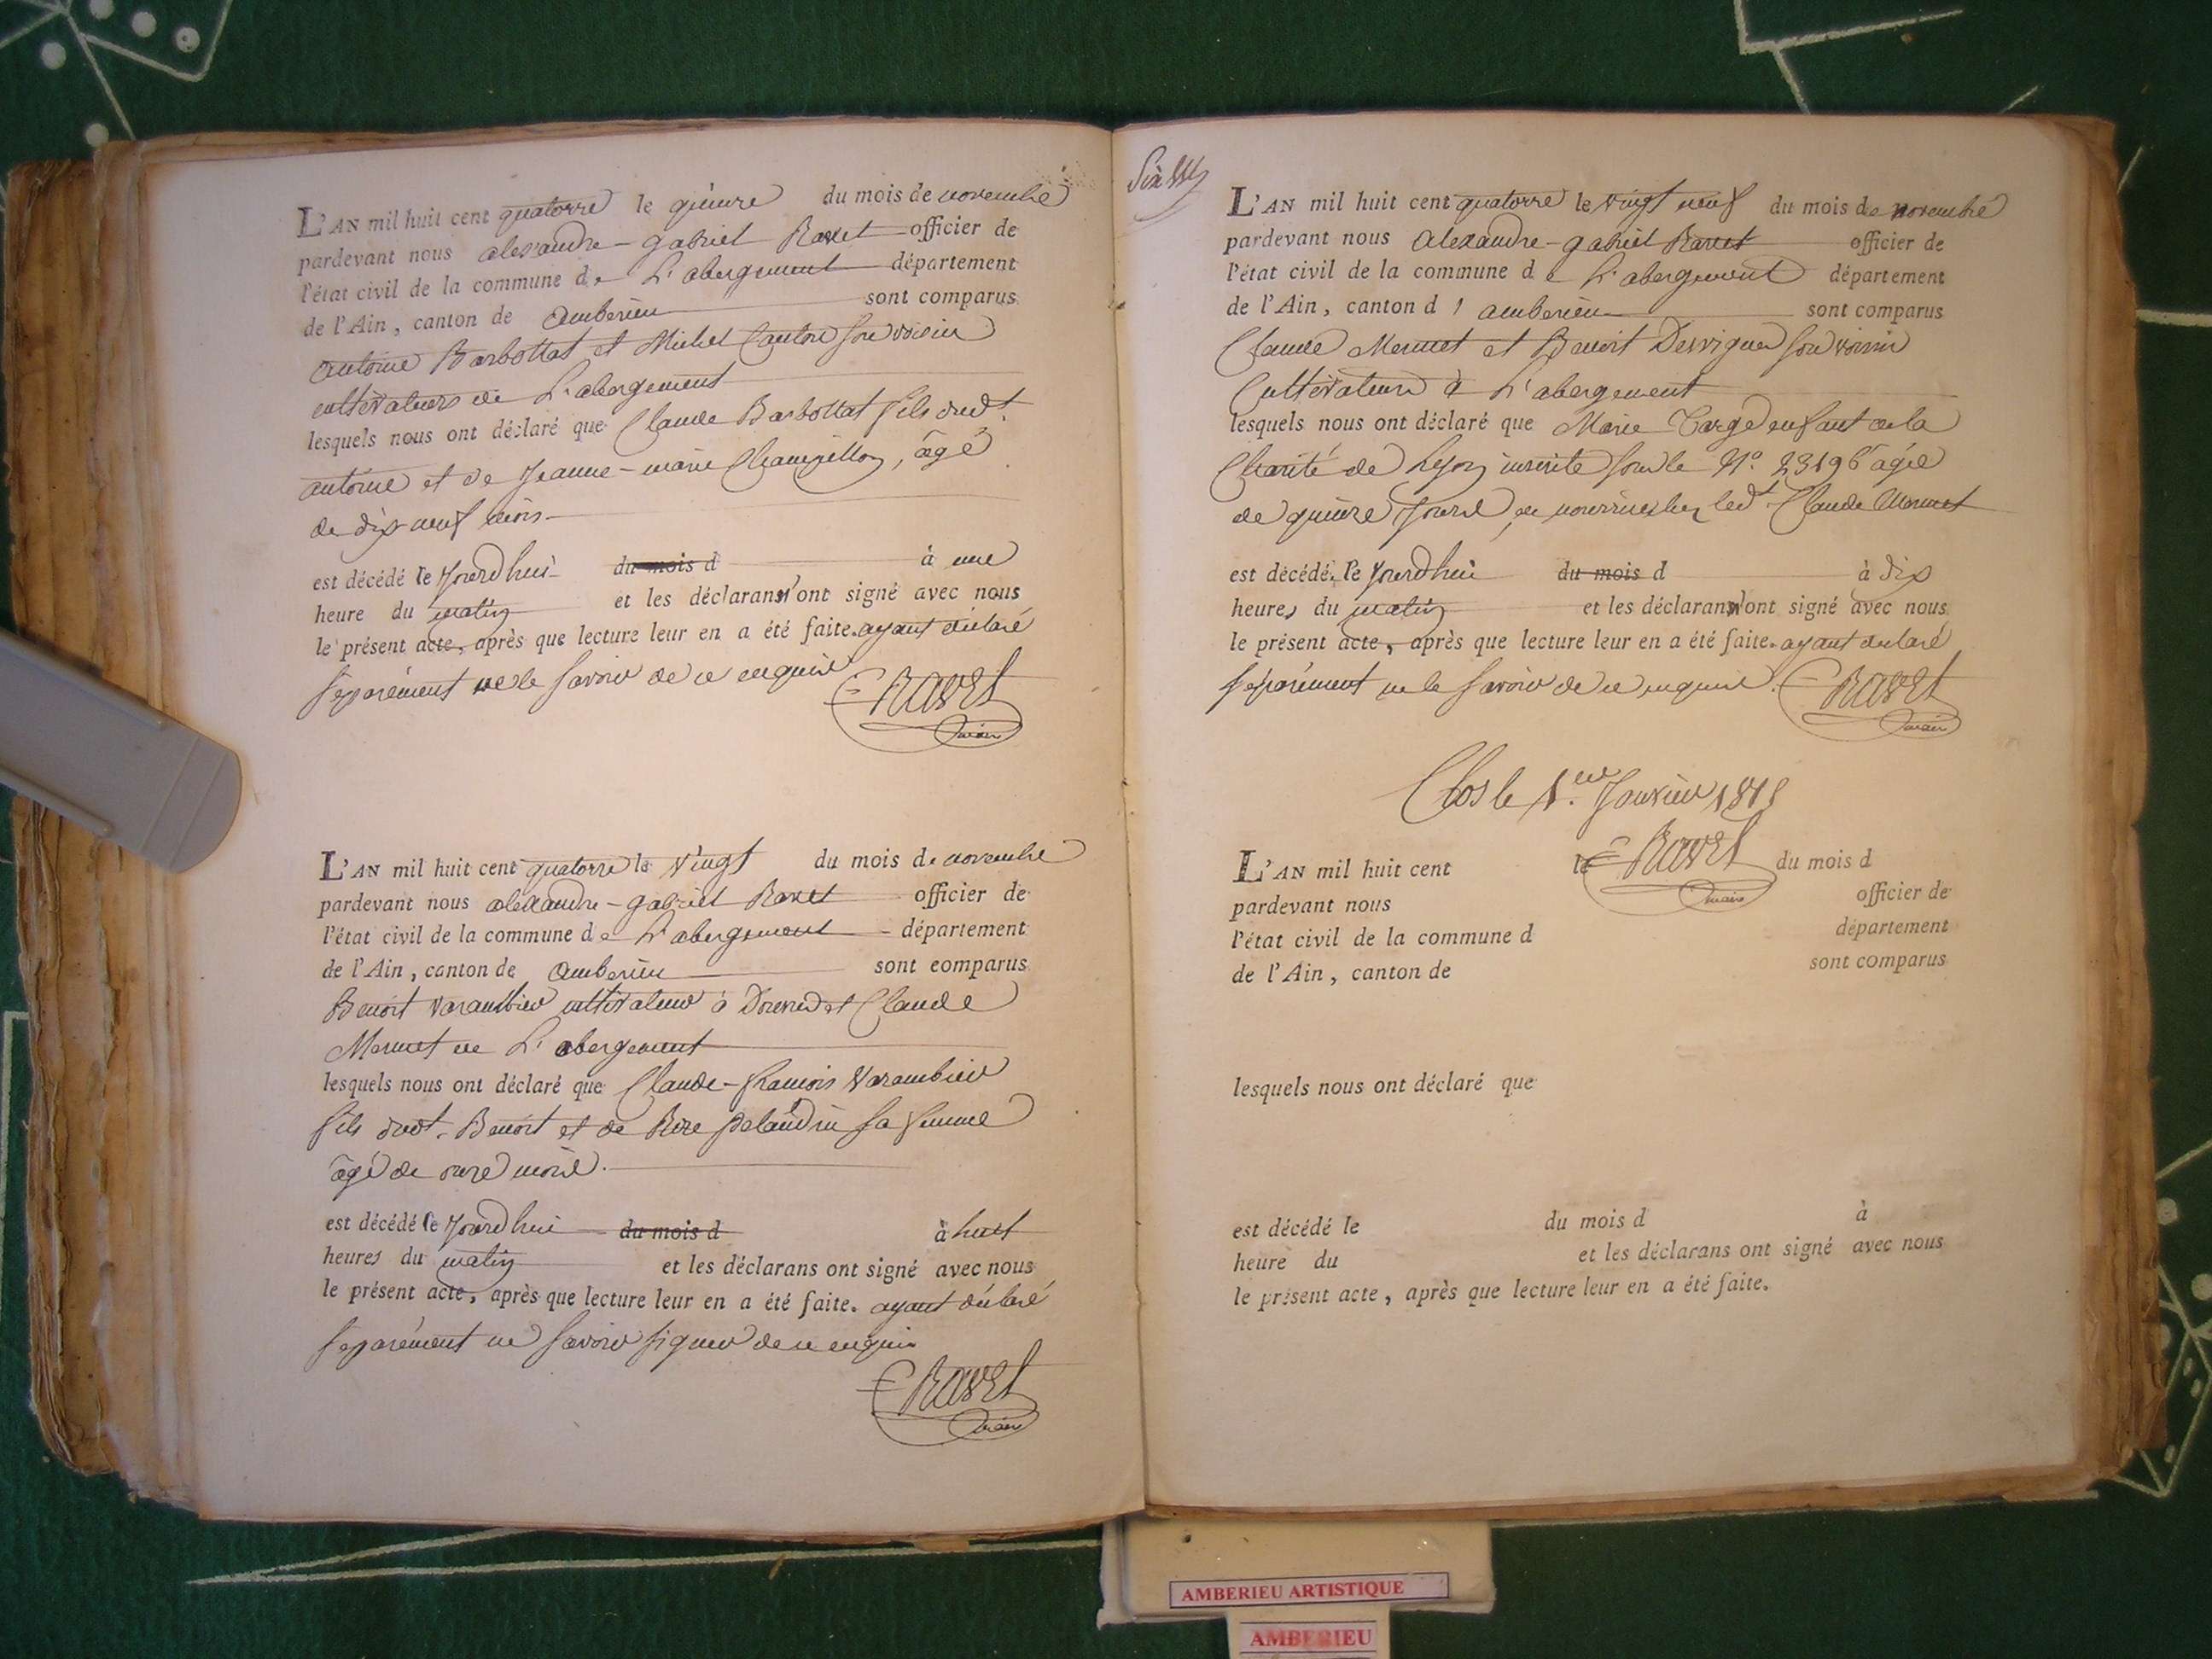 L'AN mil huit cent quatorze le quinze du mois de novembre
pardevant nous alexandre-gabriel Ravet officier de
l'état civil de la commune de L'abergement département
de l'Ain, canton de amberieu sont comparus
antoine Barbottat et Michel Cauton son voisin
cultivateurs de L'abergement
lesquels nous ont déclaré que Claude Barbottat fils dudt.
antoine et de Jeanne-marie, âgé
de dix neuf mois
est décédé le Jourdhui du mois d à une
heure du matin et les déclarans n'ont signé avec nous
le présent acte, après que lecture leur en a été faite. ayant déclaré
séparément ne le savoir de ce enquis
Ravet
maire
L'AN mil huit cent quatorze le vingt du mois de novembre
pardevant nous alexandre-gabriel Ravet officier de
l'état civil de la commune de L'abergement département
de l'Ain, canton de amberieu sont comparus
Benoit Varambieu cultivateur à Douvres et Claude
Mermet de L'abergement
lesquels nous ont déclaré que Claude-françois Varambieu
fils dudt. Benoit et de Rose pelandrin sa femme
âgé de onze mois.
est décédé le Jourdhui du mois d à huit
heures du matin et les déclarans ont signé avec nous
le présent acte, après que lecture leur en a été faite. ayant déclaré
séparément ne savoir signer de ce enquis
Ravet
maire
L'AN mil huit cent quatorze le vingt neuf du mois de novembre
pardevant nous Alexandre-gabriel Ravet officier de
l'état civil de la commune de L'abergement département
de l'Ain, canton d'amberieu sont comparus
Claude Mermet et Benoit Desvignes son voisin
Cultivateurs à L'abergement
lesquels nous ont déclaré que Marie Targe enfant de la
Charité de Lyon inscrite sous le N°. âgée
de quinze jours en nourrice chez ledt. Claude Mermet
est décédée le Jourdhui du mois d à dix
heures du matin et les déclarans n'ont signé avec nous
le présent acte, après que lecture leur en a été faite. ayant déclaré
séparément ne le savoir de ce enquis.
Ravet
maire
Clos le 1.er Janvier 1815
Ravet
maire
L'AN mil huit cent le du mois d
pardevant nous officier de
l'état civil de la commune d département
de l'Ain, canton de sont comparus
lesquels nous ont déclaré que
est décédé le du mois d à
heure du et les déclarans ont signé avec nous
le présent acte, après que lecture leur en a été faite.
AMBERIEU ARTISTIQUE
AMBERIEU